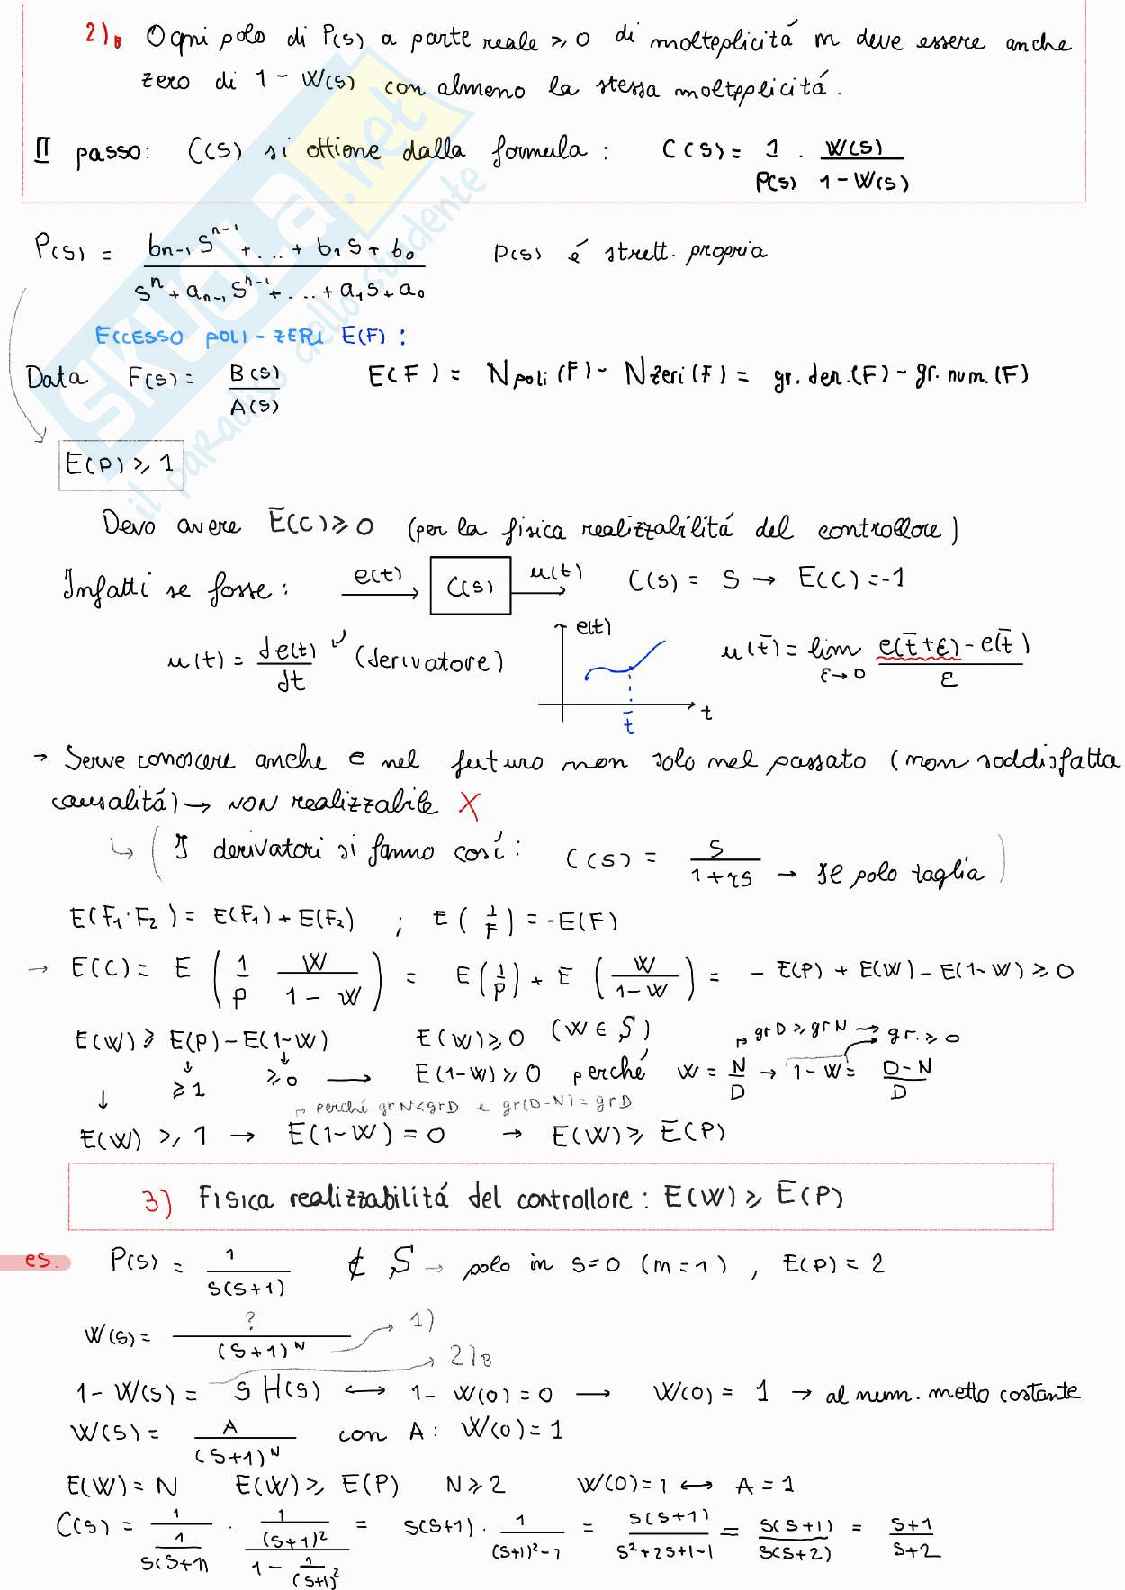 2)B Ogni polo di P(s) a parte reale ≥ 0 di molteplicitá m deve essere anche
zero di 1 - W(s) con almeno la stessa molteplicitá.
II passo: C(s) si ottiene dalla formula: C(s) = 1/P(s) · W(s)/(1-W(s))
P(s) = (bn-1 s^(n-1) + ... + b1 s + b0)/(s^n + an-1 s^(n-1) + ... + a1 s + a0) P(s) é strett. propria
ECCESSO POLI-ZERI E(F):
Data F(s) = B(s)/A(s) E(F) = Npoli(F) - Nzeri(F) = gr. den.(F) - gr. num.(F)
E(P) ≥ 1
Devo avere E(C) ≥ 0 (per la fisica realizzabilitá del controllore)
Infatti se fosse: e(t) → C(s) u(t) → C(s) = S → E(C) = -1
u(t) = de(t)/dt (derivatore) e(t) t̄ t u(t̄) = lim ε→0 (e(t̄+ε) - e(t̄))/ε
→ Serve conoscere anche e nel futuro non solo nel passato (non soddisfatta
causalitá) → NON realizzabile X
↳ (I derivatori si fanno cosí: C(s) = S/(1+τs) → Il polo taglia)
E(F1·F2) = E(F1) + E(F2) ; E(1/F) = -E(F)
→ E(C) = E(1/P W/(1-W)) = E(1/P) + E(W/(1-W)) = -E(P) + E(W) - E(1-W) ≥ 0
E(W) ≥ E(P) - E(1-W) E(W) ≥ 0 (W ∈ S) grD ≥ grN → gr. ≥ 0
↓ ≥ 1 ↓ ≥ 0 → E(1-W) ≥ 0 perché W = N/D → 1-W = (D-N)/D
perché grN < grD e gr(D-N) = grD
E(W) ≥ 1 → E(1-W) = 0 → E(W) ≥ E(P)
3) Fisica realizzabilitá del controllore: E(W) ≥ E(P)
es. P(s) = 1/(s(s+1)) ∉ S → polo in s=0 (m=1), E(P) = 2
W(s) = ?/(s+1)^N → 1)
→ 2)B
1 - W(s) = s H(s) ↔ 1 - W(0) = 0 → W(0) = 1 → al num. metto costante
W(s) = A/(s+1)^N con A: W(0) = 1
E(W) = N E(W) ≥ E(P) N ≥ 2 W(0) = 1 ↔ A = 1
C(s) = 1/(1/(s(s+1))) · (1/(s+1)^2)/(1 - 1/(s+1)^2) = s(s+1) · 1/((s+1)^2-1) = s(s+1)/(s^2+2s+1-1) = s(s+1)/(s(s+2)) = (s+1)/(s+2)
SKUOLA.net
il paradiso dello studente